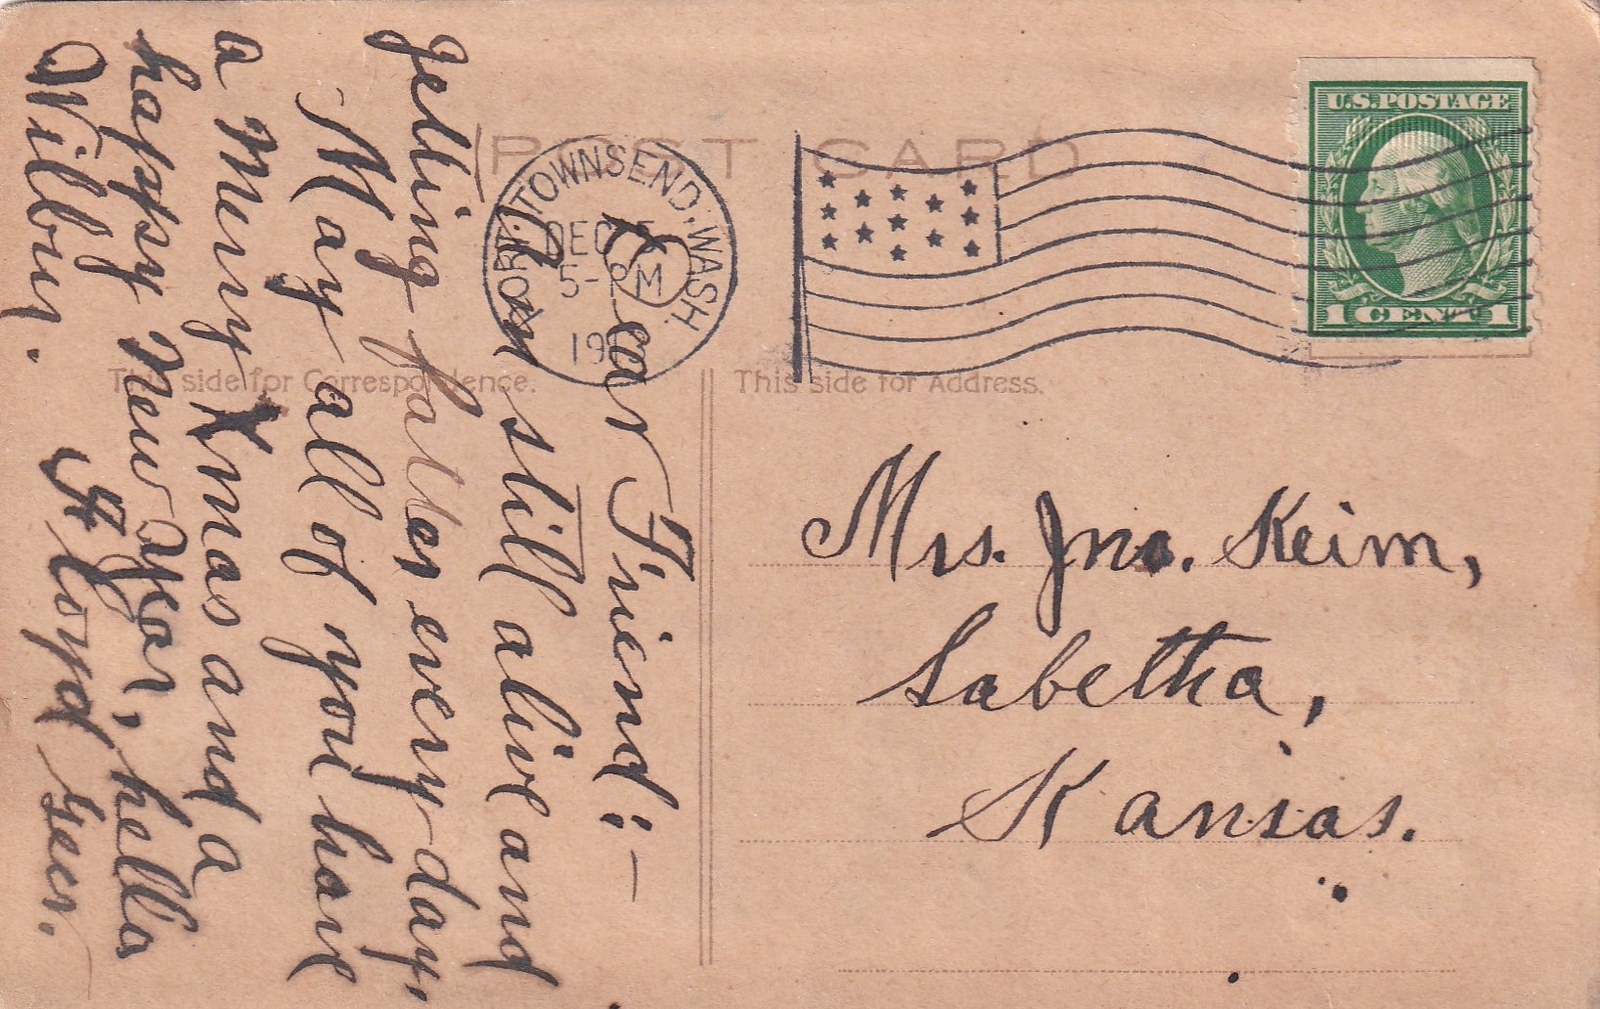 POST CARD
This side for Correspondence.
This side for Address.
PORT TOWNSEND, WASH.
DEC
5-PM
19
U.S. POSTAGE
1 CENT 1
Dear Friend:-
Am still alive and
getting fatter every day.
May all of you have
a Merry Xmas and a
happy New Year, hello
Wilbur.
Floyd Geer.
Mrs. Jno. Keim,
Sabetha,
Kansas.